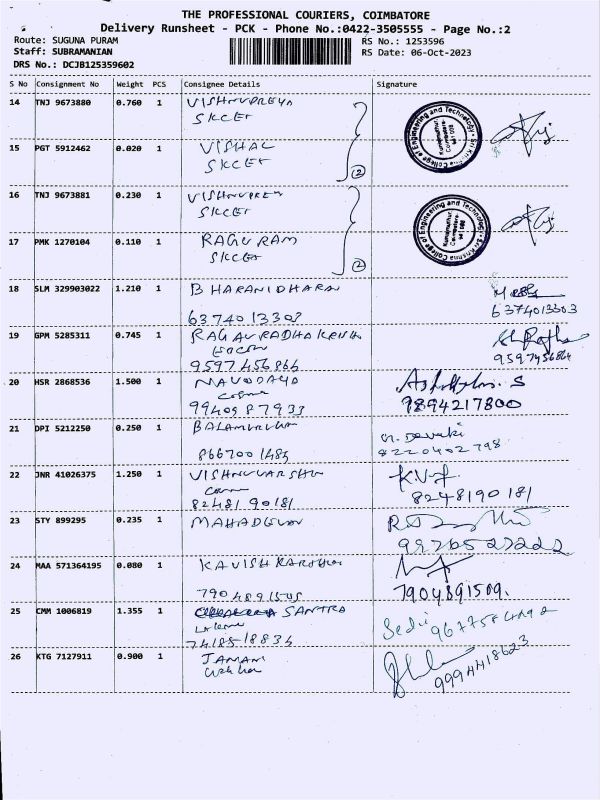 THE PROFESSIONAL COURIERS, COIMBATORE
Delivery Runsheet - PCK - Phone No.:0422-3505555 - Page No.:2
Route: SUGUNA PURAM
RS No.: 1253596
Staff: SUBRAMANIAN
RS Date: 06-Oct-2023
DRS No.: DCJB125359602
S No Consignment No Weight PCS Consignee Details Signature
14 TNJ 9673880 0.760 1 VISHNUPREYA
SKCET
15 PGT 5912462 0.020 1 VISHAL
SKCET
2
16 TNJ 9673881 0.230 1
SKCET
17 PMK 1270104 0.110 1 RAGURAM
SKCET
2
Sri Krishna College of Engineering and Technology
Kuniamuthur
Coimbatore
641 008
18 SLM 329903022 1.210 1 BHARANIDHARAN
6374013303
6374013303
19 GPM 5285311 0.745 1
9597456864
9597456864
20 HSR 2868536 1.500 1
9940987933
9894217800
21 DPI 5212250 0.250 1
8667001485
M. Devaki
8220402798
22 JNR 41026375 1.250 1
8248190181
K.V
8248190181
23 STY 899295 0.235 1
24 MAA 571364195 0.080 1
7904891509
7904891509.
25 CMM 1006819 1.355 1 SANTRA
7418518834
26 KTG 7127911 0.900 1
9994418623